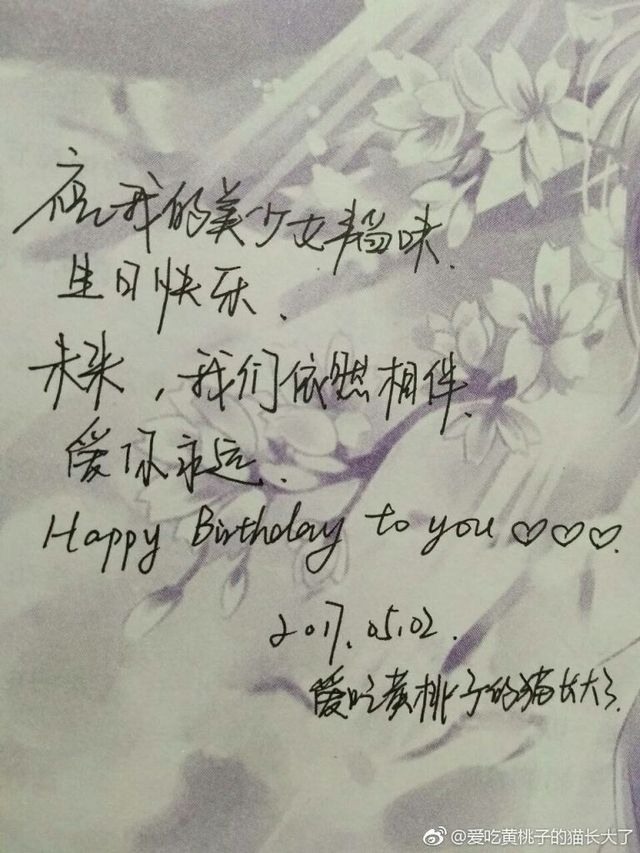 祝我的美少女韬味.
生日快乐.
未来，我们依然相伴.
爱你永远.
Happy Birthday to you ♡♡♡.
2017.05.02.
爱吃黄桃子的猫长大了.
@爱吃黄桃子的猫长大了